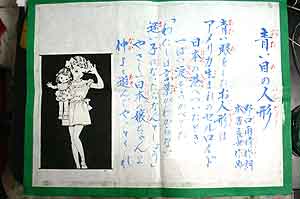 青い目の人形
野口雨情作詞
本居長世作曲
青い眼をしたお人形は
アメリカ生まれのセルロイド
日本の港へついたとき
一ぱい涙を
わたしは言葉がわからない
迷子になったらなんとしよう
やさしい日本の嬢ちゃんよ
仲よく遊んでやっとくれ